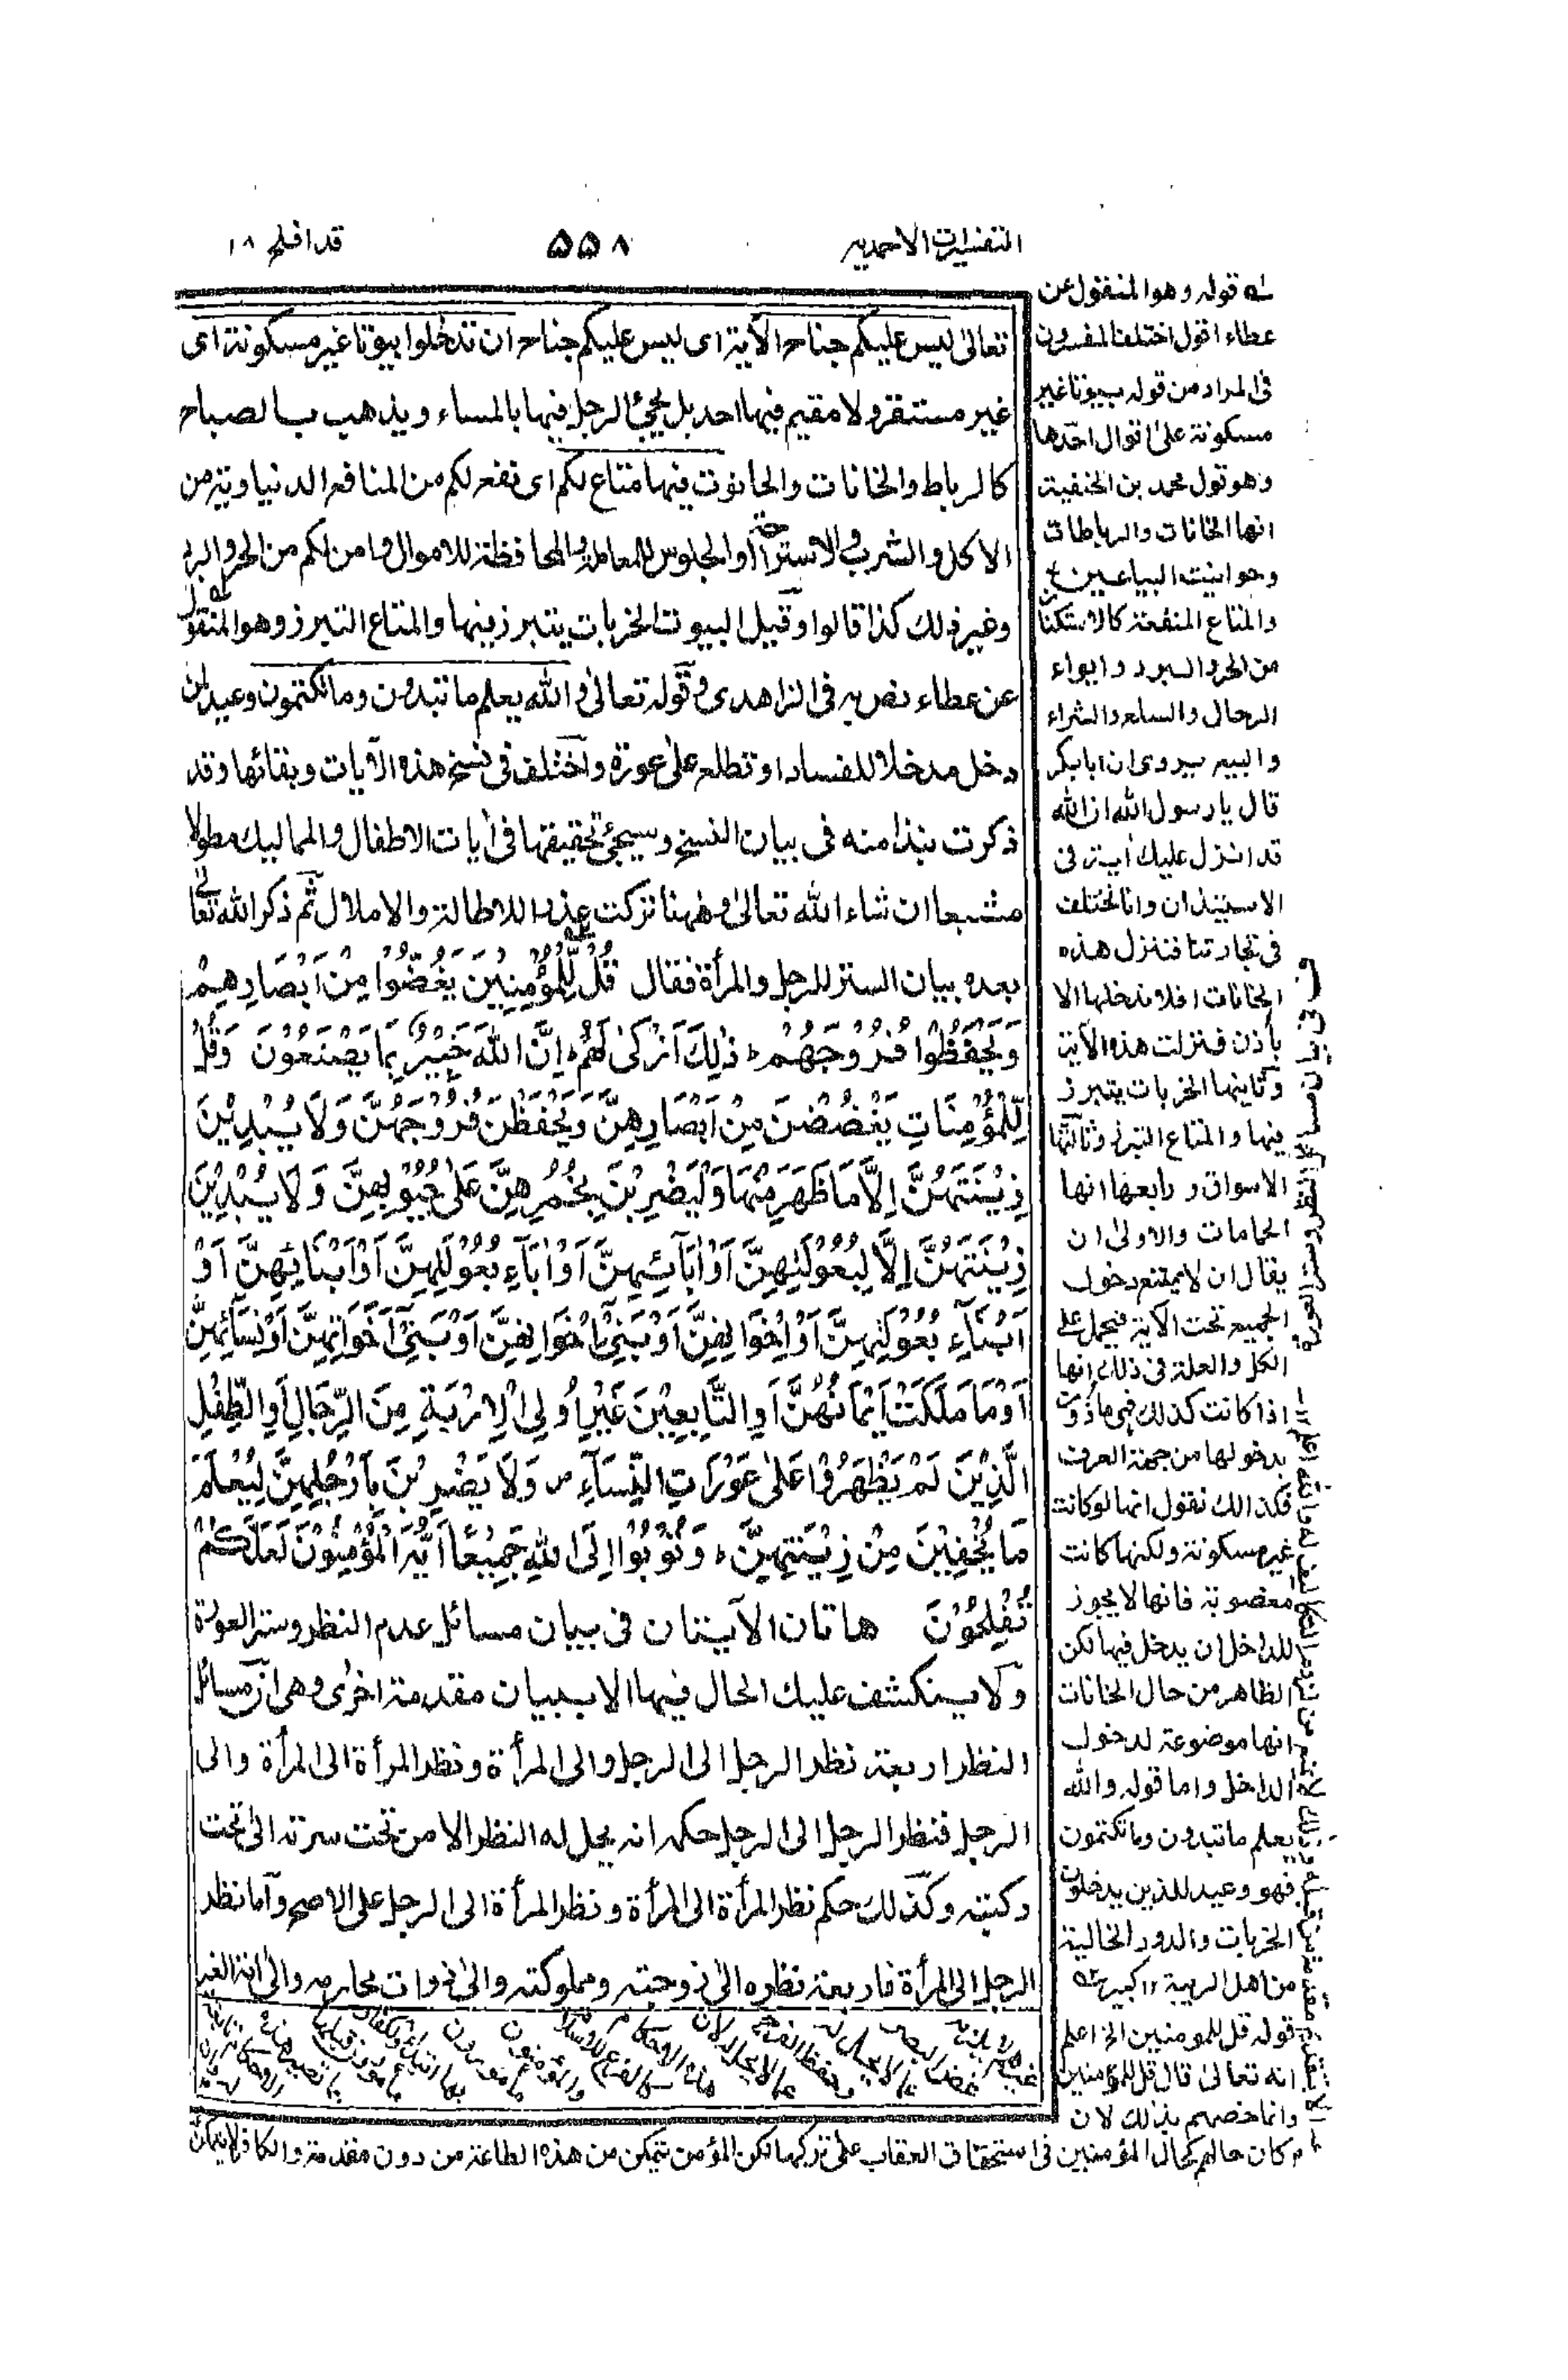 التفسيرات الاحمدية
۵۵۸
قد افلح ۱۸
تعالىٰ ليس عليكم جناح الآية اى ليس عليكم جناح ان تدخلوا بيوتا غير مسكونة اى
غير مستقر ولا مقيم فيها احد بل يجئ الرجل فيها بالمساء ويذهب بالصباح
كالرباط والخانات والحانوت فيها متاع لكم اى نفع لكم من المنافع الدنياوية من
الاكل والشرب والاستراحة او الجلوس للمعاملة والمحافظة للاموال وامن لكم من الحر والبرد
وغير ذلك كذا قالوا وقيل البيوت الخربات يتبرز فيها والمتاع التبرز وهو المنقول
عن عطاء نص به فى الزاهدى وقوله تعالىٰ والله يعلم ما تبدون وما تكتمون وعيد لمن
دخل مدخلا للفساد او تطلع علىٰ عورة واختلف فى نسخ هذه الآيات وبقائها وقد
ذكرت نبذا منه فى بيان النسخ وسيجئ تحقيقها فى اٰيات الاطفال والمماليك مطولا
مشبعا ان شاء الله تعالىٰ وههنا تركت عذرا للاطالة والاملال ثم ذكر الله تعالىٰ
بعده بيان الستر للرجل والمرأة فقال قُلْ لِّلْمُؤْمِنِيْنَ يَغُضُّوْا مِنْ اَبْصَارِهِمْ
وَيَحْفَظُوْا فُرُوْجَهُمْ ط ذٰلِكَ اَزْكىٰ لَهُمْ ط اِنَّ اللهَ خَبِيْرٌ بِمَا يَصْنَعُوْنَ وَقُلْ
لِّلْمُؤْمِنَاتِ يَغْضُضْنَ مِنْ اَبْصَارِهِنَّ وَيَحْفَظْنَ فُرُوْجَهُنَّ وَلَا يُبْدِيْنَ
زِيْنَتَهُنَّ اِلَّا مَا ظَهَرَ مِنْهَا وَلْيَضْرِبْنَ بِخُمُرِهِنَّ عَلىٰ جُيُوْبِهِنَّ وَلَا يُبْدِيْنَ
زِيْنَتَهُنَّ اِلَّا لِبُعُوْلَتِهِنَّ اَوْ اٰبَآئِهِنَّ اَوْ اٰبَآءِ بُعُوْلَتِهِنَّ اَوْ اَبْنَآئِهِنَّ اَوْ
اَبْنَآءِ بُعُوْلَتِهِنَّ اَوْ اِخْوَانِهِنَّ اَوْ بَنِيْٓ اِخْوَانِهِنَّ اَوْ بَنِيْٓ اَخَوَاتِهِنَّ اَوْ نِسَآئِهِنَّ
اَوْ مَا مَلَكَتْ اَيْمَانُهُنَّ اَوِ التَّابِعِيْنَ غَيْرِ اُولِى الْاِرْبَةِ مِنَ الرِّجَالِ اَوِ الطِّفْلِ
الَّذِيْنَ لَمْ يَظْهَرُوْا عَلىٰ عَوْرَاتِ النِّسَآءِ ص وَلَا يَضْرِبْنَ بِاَرْجُلِهِنَّ لِيُعْلَمَ
مَا يُخْفِيْنَ مِنْ زِيْنَتِهِنَّ ط وَتُوْبُوْا اِلَى اللهِ جَمِيْعًا اَيُّهَ الْمُؤْمِنُوْنَ لَعَلَّكُمْ
تُفْلِحُوْنَ هاتان الآيتان فى بيان مسائل عدم النظر وستر العورة
ولا ينكشف عليك الحال فيها الا ببيان مقدمة اخرى وهى ان مسائل
النظر اربعة نظر الرجل الى الرجل والى المرأة ونظر المرأة الى المرأة والى
الرجل فنظر الرجل الى الرجل حكمه انه يحل له النظر الا من تحت سرته الى تحت
ركبته وكذلك حكم نظر المرأة الى المرأة ونظر المرأة الى الرجل على الاصح واما نظر
الرجل الى المرأة فاربعة نظره الىٰ زوجته ومملوكته والىٰ ذوات محارمه والىٰ امة الغير
لـه قوله وهو المنقول عن
عطاء اقول اختلف المفسرون
فى المراد من قوله بيوتا غير
مسكونة علىٰ اقوال احدها
وهو قول محمد بن الحنفية
انها الخانات والرباطات
وحوانيت البياعين
والمتاع المنفعة كالاستكنان
من الحر والبرد وايواء
الرحال والسلع والشراء
والبيع يروى ان ابا بكر
قال يا رسول الله ان الله
قد انزل عليك اٰية فى
الاستيذان وانا نختلف
فى تجارتنا فننزل هذه
الخانات افلا ندخلها الا
باذن فنزلت هذه الآية
وثانيها الخربات يتبرز
فيها والمتاع التبرز وثالثها
الاسواق ورابعها انها
الحمامات والاولىٰ ان
يقال ان لا يمتنع دخول
الجميع تحت الآية فيحمل على
الكل والعلة فى ذلك انها
اذا كانت كذلك فهى ماذون
بدخولها من جهة العرف
فكذلك نقول انها لو كانت
غير مسكونة ولكنها كانت
مغصوبة فانها لا يجوز
للداخل ان يدخل فيها لكن
الظاهر من حال الخانات
انها موضوعة لدخول
الداخل واما قوله والله
يعلم ما تبدون وما تكتمون
فهو وعيد للذين يدخلون
الخربات والدور الخالية
من اهل الريبة ۱۲ كبير
قوله قل للمومنين الخ اعلم
انه تعالىٰ قال قل للمؤمنين
وانما خصهم بذلك لان
م كان حالهم كحال المؤمنين فى استحقاق العقاب على تركها لكن المؤمن يتمكن من هذه الطاعة من دون مقدمة والكافر لا يتمكن
فى بيان مسائل النظر وستر العورة